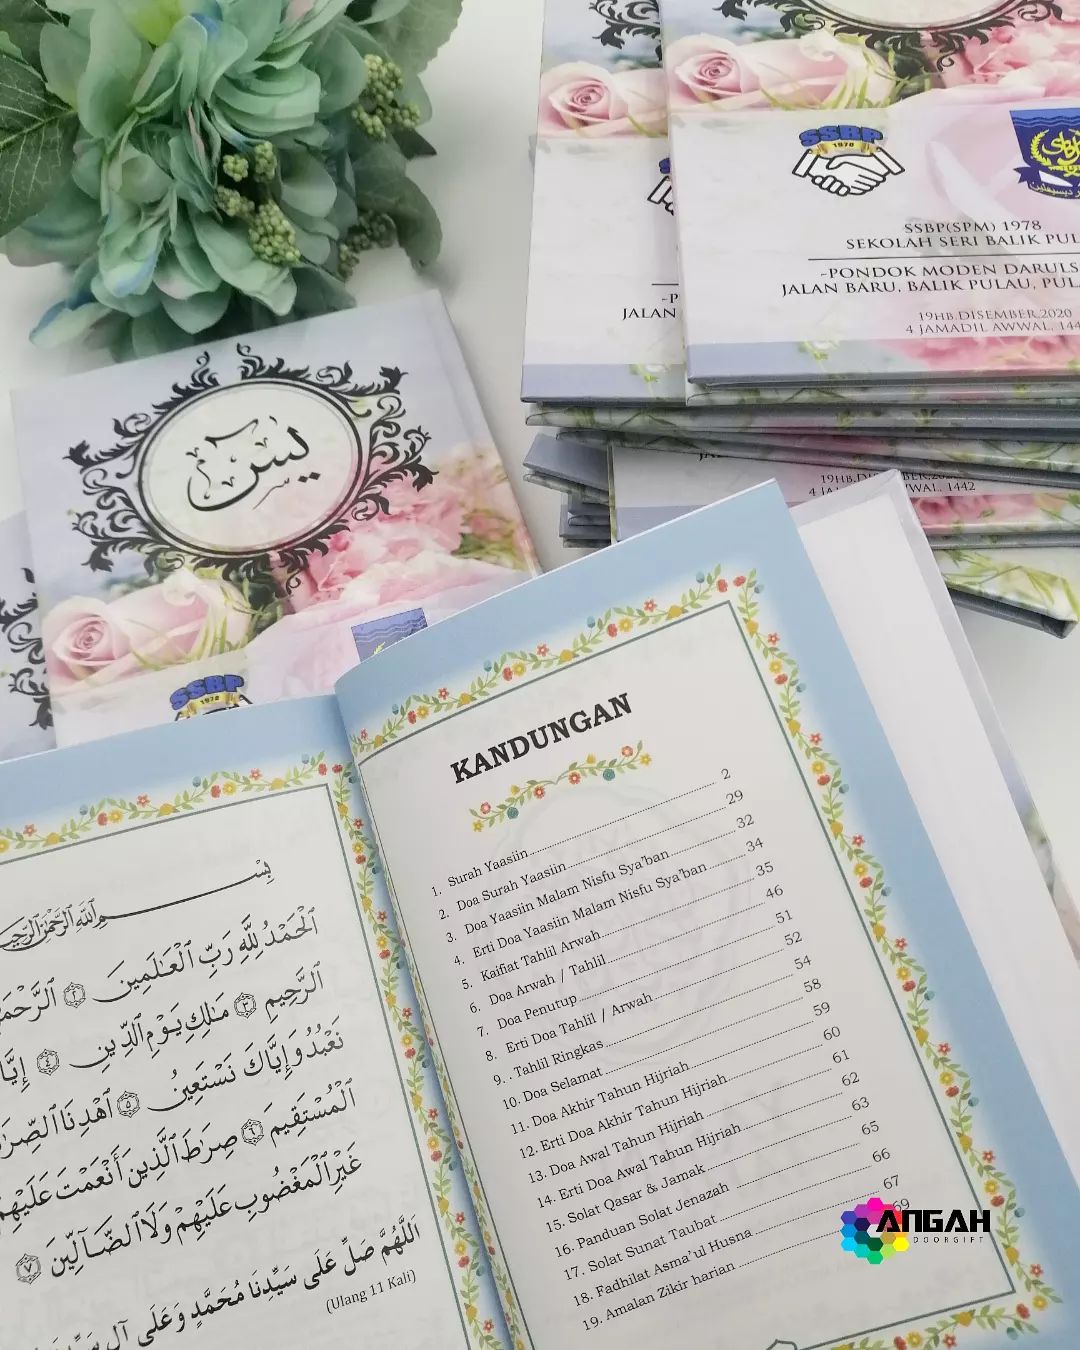 SSBP
1978
SSBP(SPM) 1978
SEKOLAH SERI BALIK
~PONDOK MODEN
JALAN BARU, BALIK PULAU,
19HB.DISEMBER,2020
4 JAMADIL AWWAL,
JALAN
4
AWWAL, 1442
يس
SSBP
1978
بِسْمِ ٱللَّهِ ٱلرَّحْمَٰنِ ٱلرَّحِيمِ
ٱلْحَمْدُ لِلَّهِ رَبِّ ٱلْعَٰلَمِينَ ٢
ٱلرَّحِيمِ ٣ مَٰلِكِ يَوْمِ ٱلدِّينِ ٤
نَعْبُدُ وَإِيَّاكَ نَسْتَعِينُ ٥ ٱهْدِنَا
ٱلْمُسْتَقِيمَ ٦ صِرَٰطَ ٱلَّذِينَ أَنْعَمْتَ عَلَيْهِمْ
غَيْرِ ٱلْمَغْضُوبِ عَلَيْهِمْ وَلَا ٱلضَّآلِّينَ ٧
اَللَّهُمَّ صَلِّ عَلَى سَيِّدِنَا مُحَمَّدٍ وَعَلَى آلِ
(Ulang 11 Kali)
KANDUNGAN
1. Surah Yaasiin 2
2. Doa Surah Yaasiin 29
3. Doa Yaasiin Malam Nisfu Sya'ban 32
4. Erti Doa Yaasiin Malam Nisfu Sya'ban 34
5. Kaifiat Tahlil Arwah 35
6. Doa Arwah / Tahlil 46
7. Doa Penutup 51
8. Erti Doa Tahlil / Arwah 52
9. . Tahlil Ringkas 54
10. Doa Selamat 58
11. Doa Akhir Tahun Hijriah 59
12. Erti Doa Akhir Tahun Hijriah 60
13. Doa Awal Tahun Hijriah 61
14. Erti Doa Awal Tahun Hijriah 62
15. Solat Qasar & Jamak 63
16. Panduan Solat Jenazah 65
17. Solat Sunat Taubat 66
18. Fadhilat Asma'ul Husna 67
19. Amalan Zikir harian 69
ANGAH
DOORGIFT